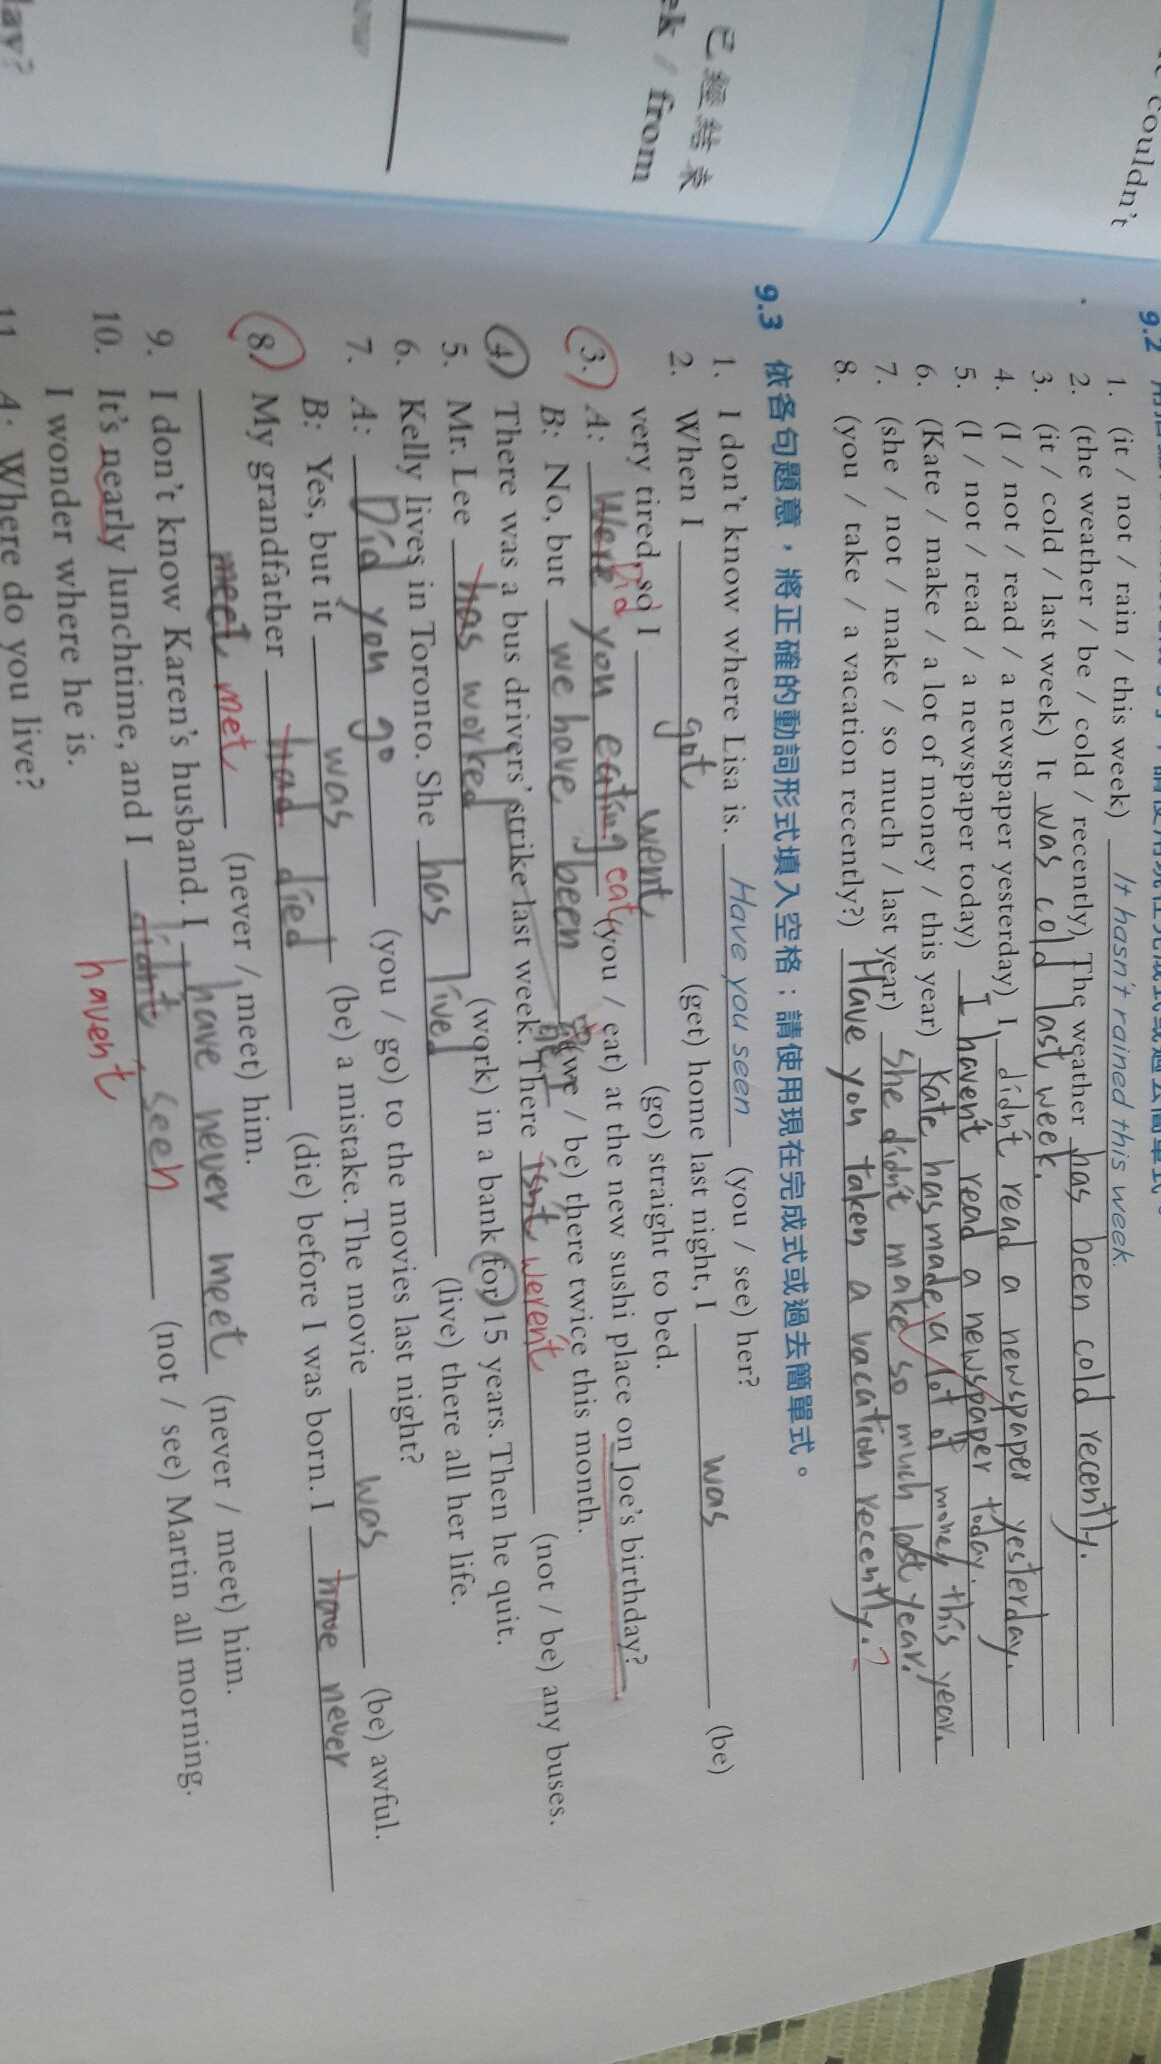 couldn't
已經結束
ek / from
lay?
9.2
1. (it / not / rain / this week) It hasn't rained this week.
2. (the weather / be / cold / recently) The weather has been cold recently.
3. (it / cold / last week) It was cold last week.
4. (I / not / read / a newspaper yesterday) I didn't read a newspaper yesterday.
5. (I / not / read / a newspaper today) I haven't read a newspaper today.
6. (Kate / make / a lot of money / this year) Kate has made a lot of money this year.
7. (she / not / make / so much / last year) She didn't make so much last year.
8. (you / take / a vacation recently?) Have you taken a vacation recently?
9.3 依各句題意，將正確的動詞形式填入空格；請使用現在完成式或過去簡單式。
1. I don't know where Lisa is. Have you seen (you / see) her?
2. When I got (get) home last night, I was (be)
very tired, so I went (go) straight to bed.
3. A: Did you eating eat (you / eat) at the new sushi place on Joe's birthday?
B: No, but we have been (we / be) there twice this month.
4. There was a bus drivers' strike last week. There isn't weren't (not / be) any buses.
5. Mr. Lee has worked (work) in a bank for 15 years. Then he quit.
6. Kelly lives in Toronto. She has lived (live) there all her life.
7. A: Did you go (you / go) to the movies last night?
B: Yes, but it was (be) a mistake. The movie was (be) awful.
8. My grandfather had died (die) before I was born. I have never
meet met (never / meet) him.
9. I don't know Karen's husband. I have never meet (never / meet) him.
10. It's nearly lunchtime, and I didn't seen (not / see) Martin all morning.
havent
I wonder where he is.
11. A: Where do you live?